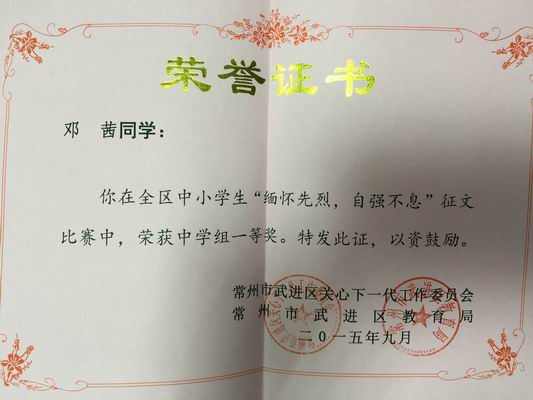 荣誉证书
邓 茜同学：
你在全区中小学生“缅怀先烈，自强不息”征文
比赛中，荣获中学组一等奖。特发此证，以资鼓励。
常州市武进区关心下一代工作委员会
常州市武进区教育局
二〇一五年九月